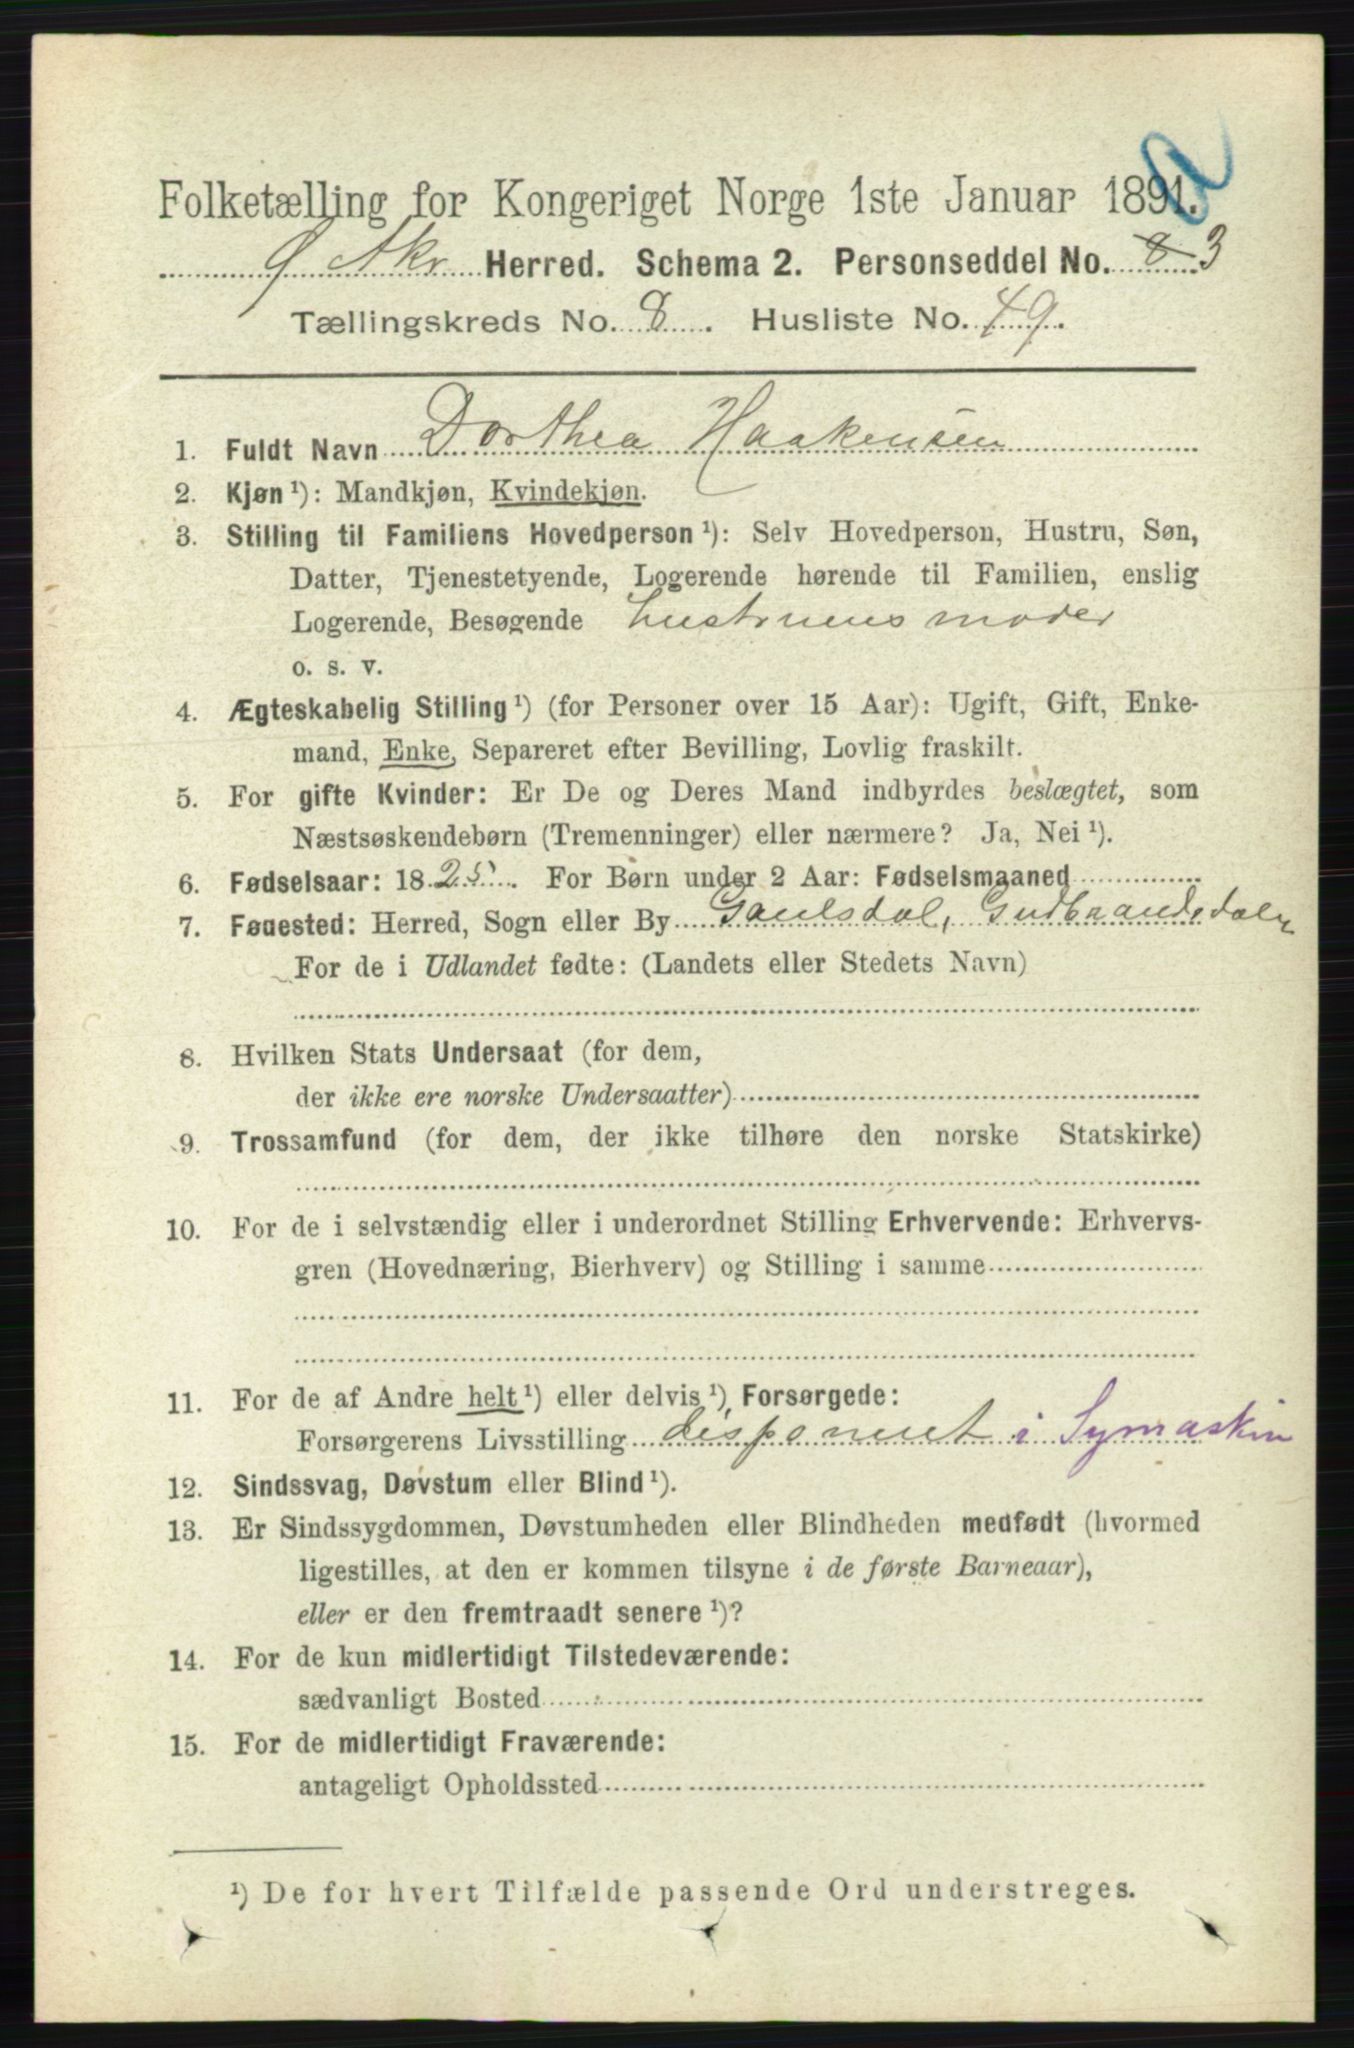 Folketælling for Kongeriget Norge 1ste Januar 1891.
Ø Akr Herred. Schema 2. Personseddel No. 8 3
Tællingskreds No. 8. Husliste No. 49.
1. Fuldt Navn Dorthea Haakensen
2. Kjøn ¹): Mandkjøn, Kvindekjøn.
3. Stilling til Familiens Hovedperson ¹): Selv Hovedperson, Hustru, Søn,
Datter, Tjenestetyende, Logerende hørende til Familien, enslig
Logerende, Besøgende hustruens moder
o. s. v.
4. Ægteskabelig Stilling ¹) (for Personer over 15 Aar): Ugift, Gift, Enke-
mand, Enke, Separeret efter Bevilling, Lovlig fraskilt.
5. For gifte Kvinder: Er De og Deres Mand indbyrdes beslægtet, som
Næstsøskendebørn (Tremenninger) eller nærmere? Ja, Nei ¹).
6. Fødselsaar: 1825. For Børn under 2 Aar: Fødselsmaaned
7. Fødested: Herred, Sogn eller By Gaulsdal, Gudbrandsdalen
For de i Udlandet fødte: (Landets eller Stedets Navn)
8. Hvilken Stats Undersaat (for dem,
der ikke ere norske Undersaatter)
9. Trossamfund (for dem, der ikke tilhøre den norske Statskirke)
10. For de i selvstændig eller i underordnet Stilling Erhvervende: Erhvervs-
gren (Hovednæring, Bierhverv) og Stilling i samme
11. For de af Andre helt ¹) eller delvis ¹), Forsørgede:
Forsørgerens Livsstilling disponent i Symaskin
12. Sindssvag, Døvstum eller Blind ¹).
13. Er Sindssygdommen, Døvstumheden eller Blindheden medfødt (hvormed
ligestilles, at den er kommen tilsyne i de første Barneaar),
eller er den fremtraadt senere ¹)?
14. For de kun midlertidigt Tilstedeværende:
sædvanligt Bosted
15. For de midlertidigt Fraværende:
antageligt Opholdssted
¹) De for hvert Tilfælde passende Ord understreges.